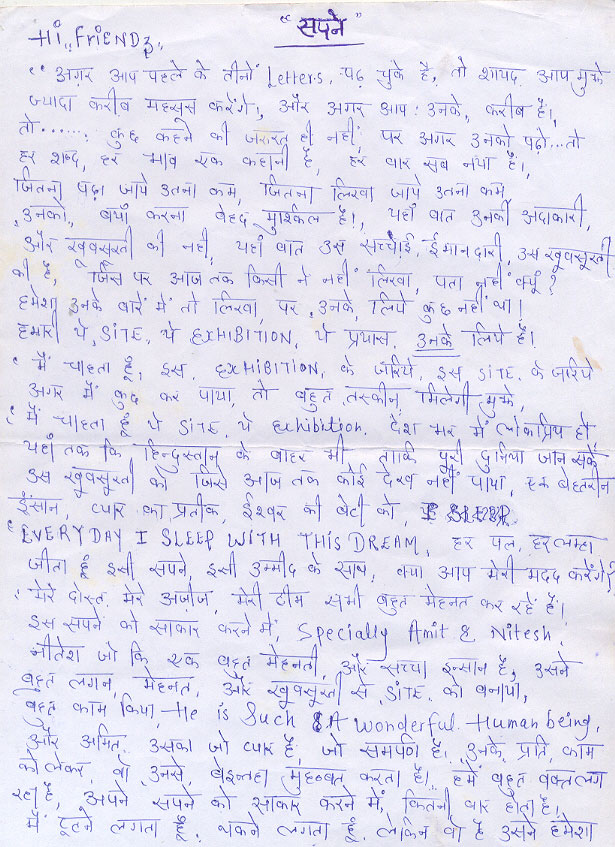 "सपने"
Hi,, FRiENDz,,
"अगर आप पहले के तीनों Letters, पढ़ चुके है, तो शायद आप मुझे
ज्यादा करीब महसूस करेंगे, और अगर आप उनके, करीब है।,
तो....... कुछ कहने की जरूरत ही नहीं, पर अगर उनको पढ़ो...तो
हर शब्द, हर भाव एक कहानी है, हर बार सब नया है।,
जितना पढ़ा जाये उतना कम, जितना लिखा जाये उतना कम
उनको, बयाँ करना बेहद मुश्किल है।, यहाँ बात उनकी अदाकारी,
और खूबसूरती की नहीं, यहाँ बात उस सच्चाई, ईमानदारी, उस खूबसूरती
की है, जिस पर आज तक किसी ने नहीं लिखा, पता नहीं क्यूँ?
हमेशा उनके बारें में तो लिखा, पर उनके, लिये कुछ नहीं था।
हमारी ये SITE, ये EXHIBITION, ये प्रयास, उनके लिये है।
"मैं चाहता हूँ, इस EXHIBITION, के जरिये, इस SITE के जरिये
अगर मैं कुछ कर पाया, तो बहुत तस्कीन, मिलेगी मुझे,
"मैं चाहता हूँ ये SITE, ये Exhibition. देश भर में लोकप्रिय हो
यहाँ तक कि हिन्दुस्तान के बाहर भी ताकि पूरी दुनिया जान सकें
उस खूबसूरती को जिसे आज तक कोई देख नहीं पाया, एक बेहतरीन
इंसान, प्यार का प्रतीक, ईश्वर की बेटी को,
"EVERYDAY I SLEEP WITH THIS DREAM, हर पल, हर लम्हा
जीता हूँ इसी सपने, इसी उम्मीद के साथ, क्या आप मेरी मदद करेंगे?
"मेरे दोस्त, मेरे अजीज, मेरी टीम सभी बहुत मेहनत कर रहें है।
इस सपने को साकार करने में, Specially Amit & Nitesh.
नीतेश जो कि एक बहुत मेहनती, और सच्चा इन्सान है, उसने
बहुत लगन, मेहनत, और खूबसूरती से SITE, को बनाया,
बहुत काम किया, He is Such A Wonderful Human being,
और अमित, उसका जो प्यार है, जो समर्पण है। उनके, प्रति, काम
को लेकर, वो उनसे, बेइन्तहा मुहब्बत करता है।, हमें बहुत वक्त लग
रहा है, अपने सपने को साकार करने में, कितनी बार होता है,
मैं टूटने लगता हूँ, थकने लगता हूँ, लेकिन वो है उसने हमेशा